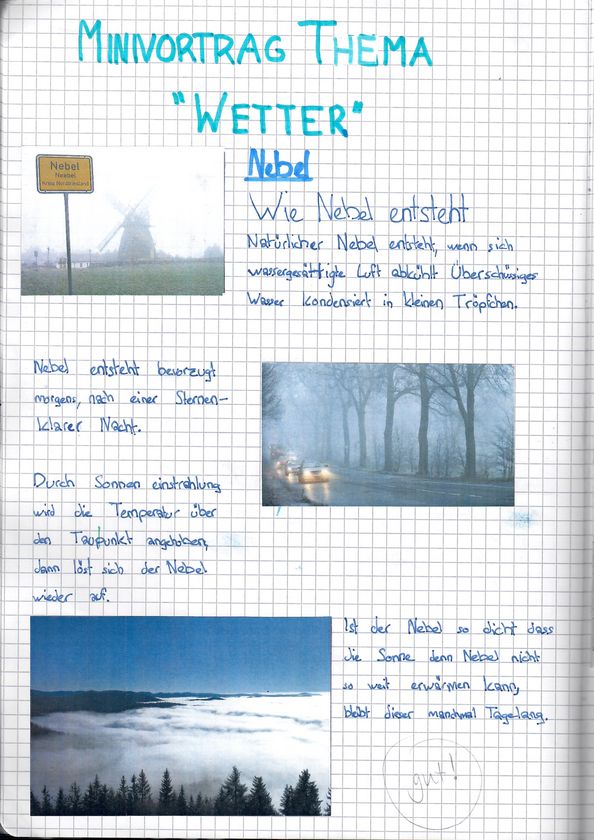 MINIVORTRAG THEMA
"WETTER"
Nebel
Neebel
Kreis Nordfriesland
Nebel
Wie Nebel entsteht
Natürlicher Nebel entsteht, wenn sich
wassergesättigte Luft abkühlt Überschüssiges
Wasser kondensiert in kleinen Tröpfchen.
Nebel entsteht bevorzugt
morgens, nach einer Sternen-
klarer Nacht.
Durch Sonnen einstrahlung
wird die Temperatur über
den Taupunkt angehoben,
dann löst sich der Nebel
wieder auf.
Ist der Nebel so dicht dass
die Sonne denn Nebel nicht
so weit erwärmen kann,
bleibt dieser manchmal Tagelang.
gut!